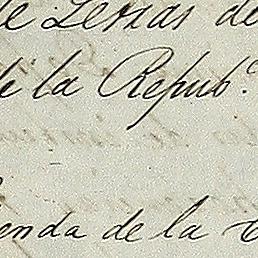 de Lerias de
de la Repub.c
enda de la